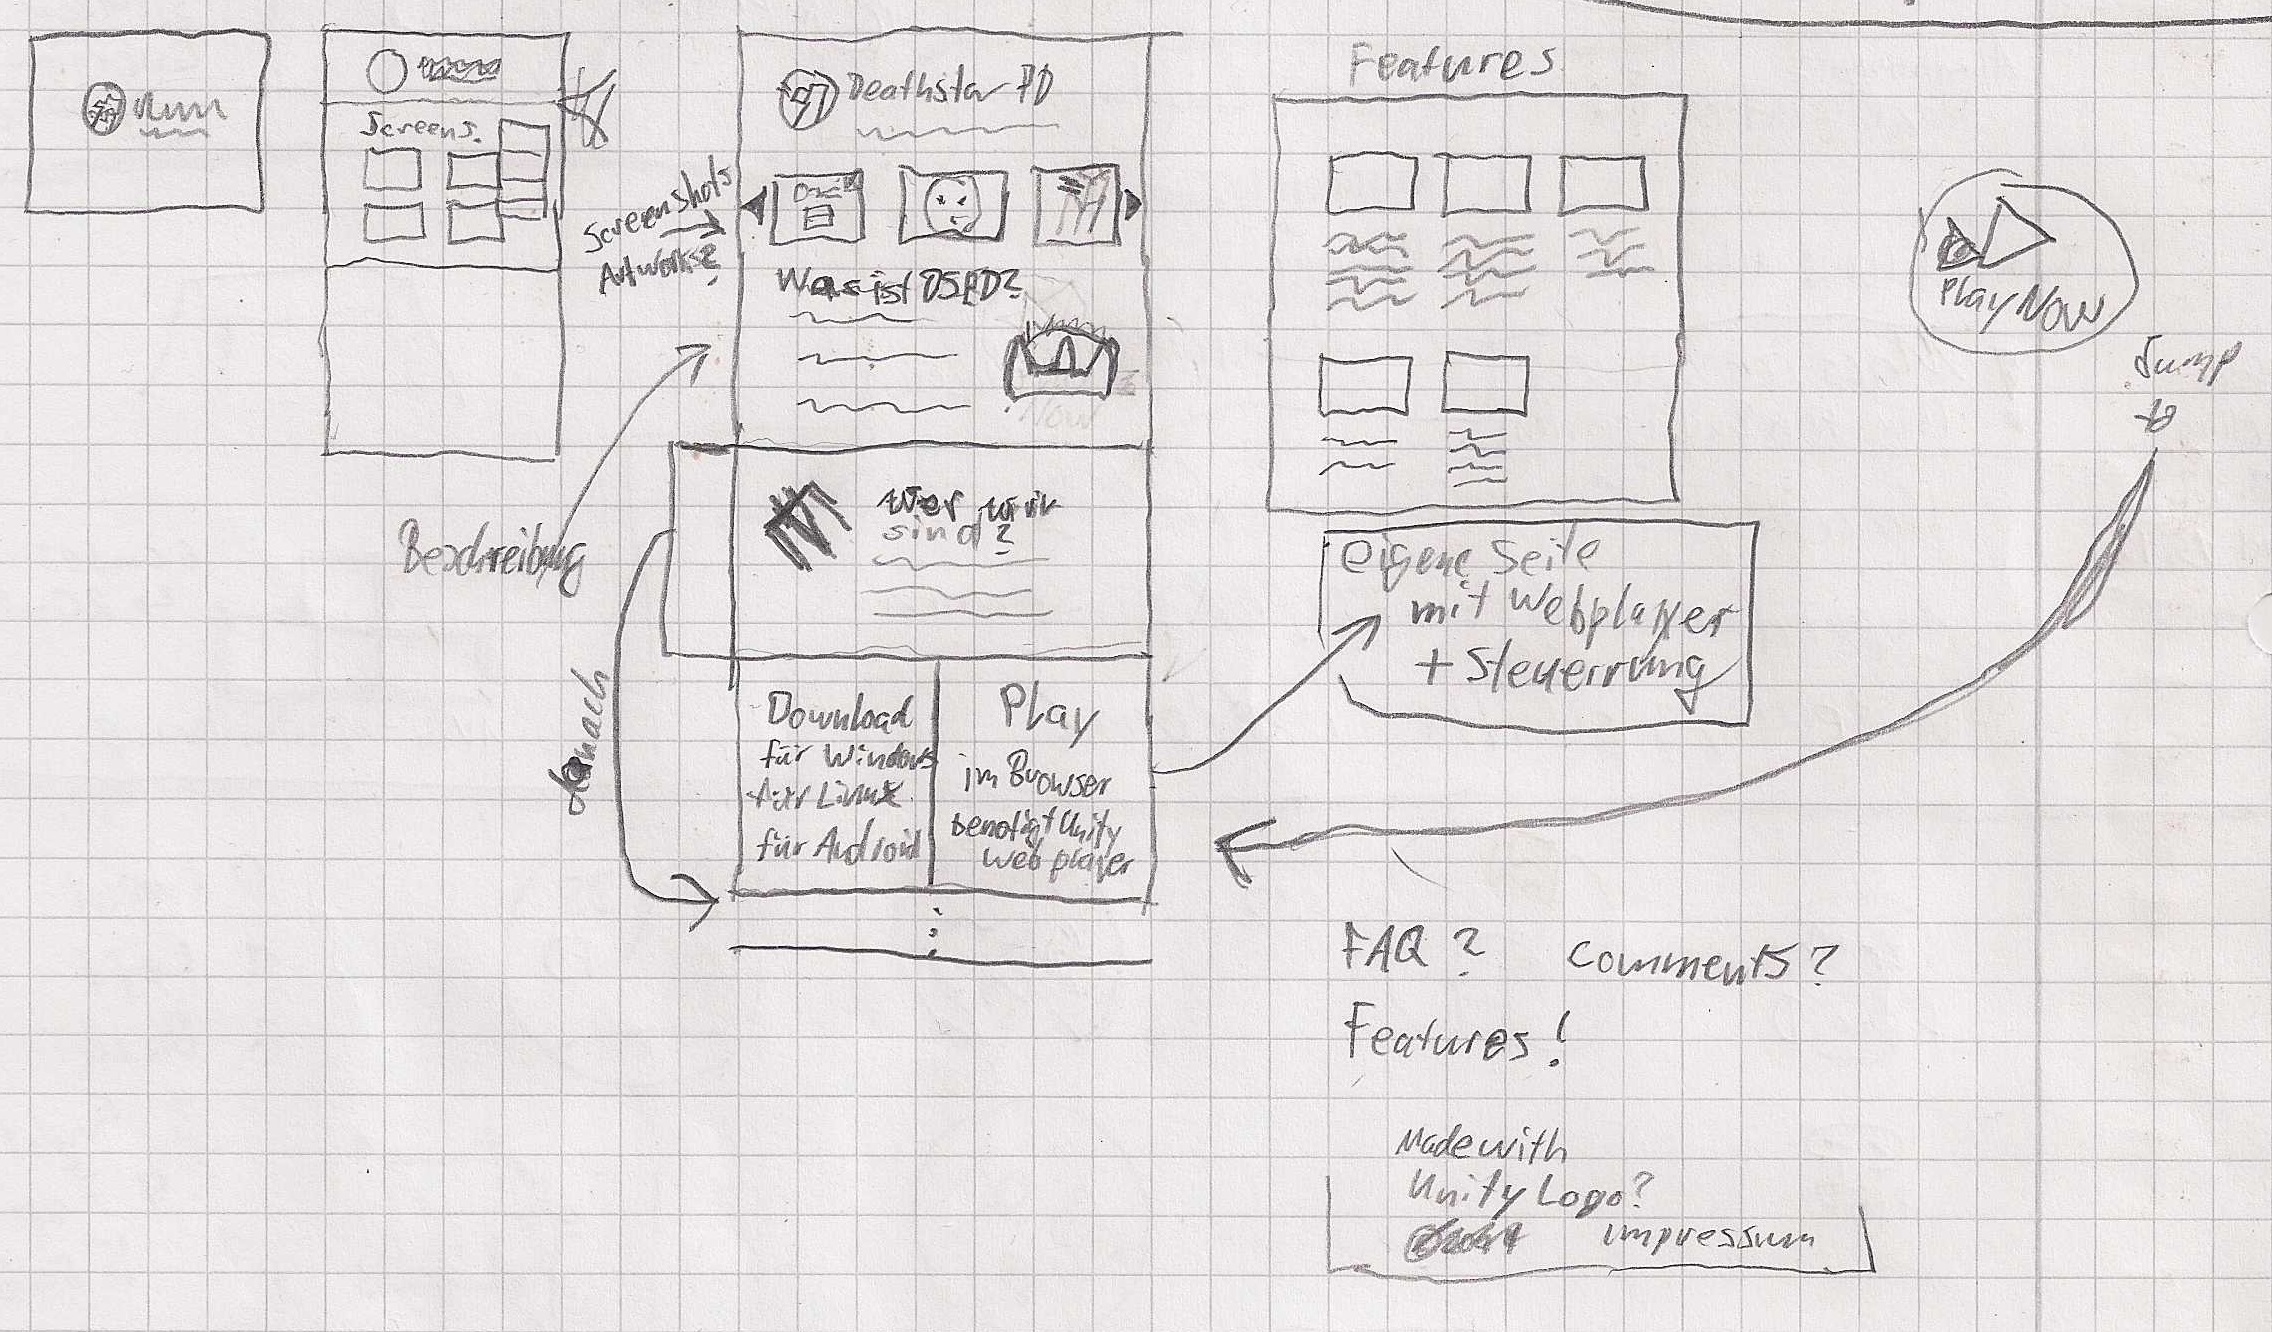 Screens.
Screenshots
Artworks?
Deathstar PD
Was ist DSPD?
Beschreibung
wer wir
sind?
danach
Download
für Windows
für Linux
für Android
Play
im Browser
benötigt Unity
webplayer
Features
eigene Seite
mit Webplayer
+ Steuerrung
Play Now
Jump
to
FAQ ? Comments?
Features!
Made with
Unity Logo?
impressum